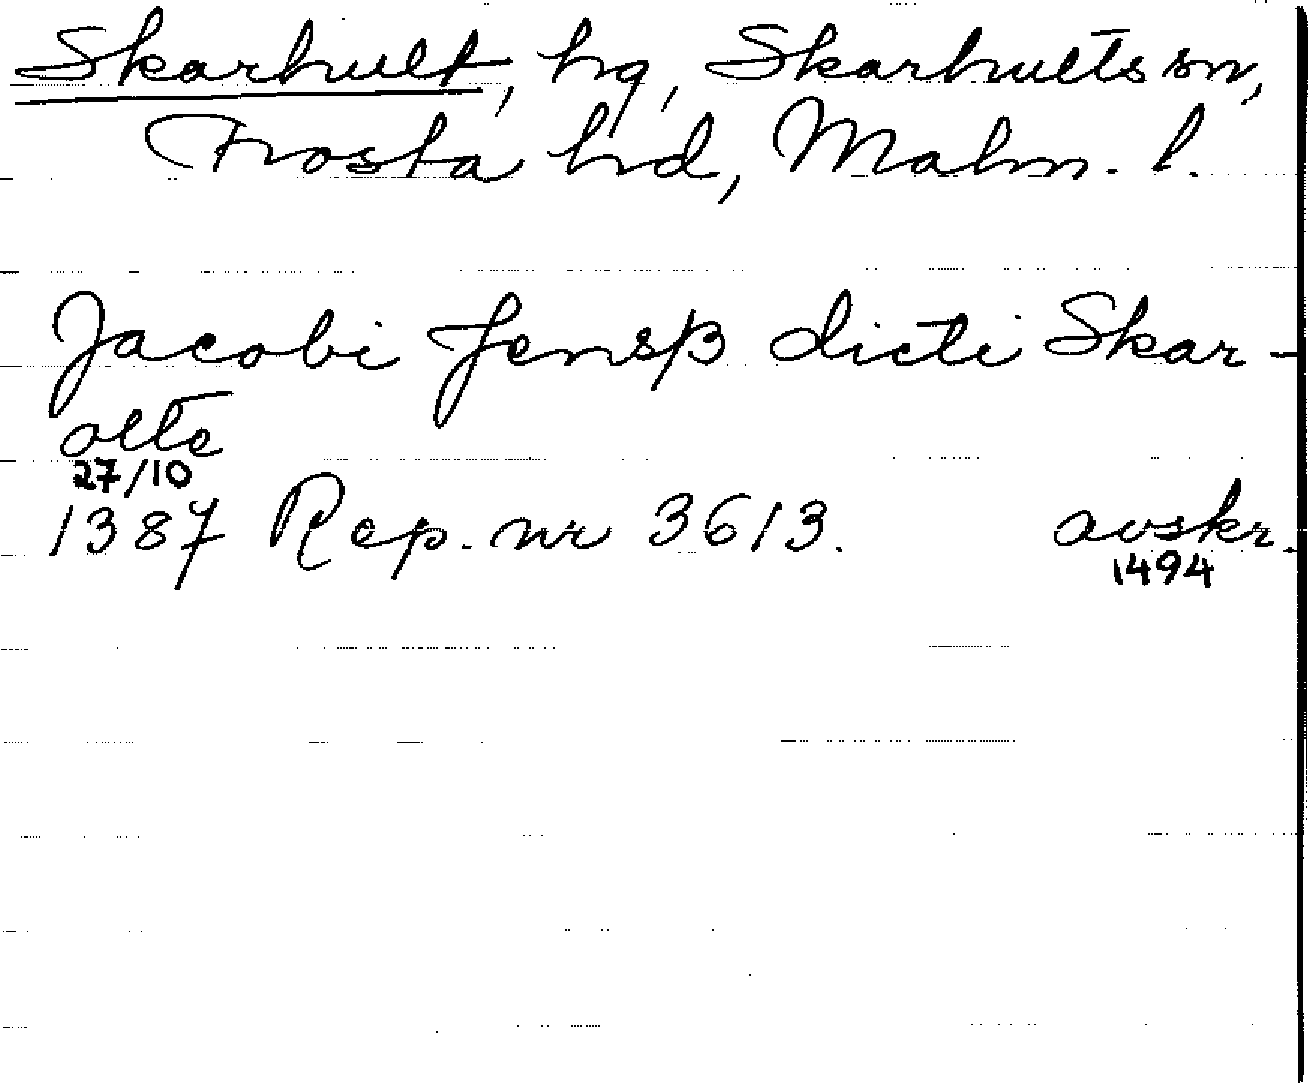 Skarhult, hg, Skarhults sn,
Frosta hd, Malm. l.
Jacobi Jensß dicti Skar-
olte
27/10
1387 Rep. nr 3613. avskr.
1494